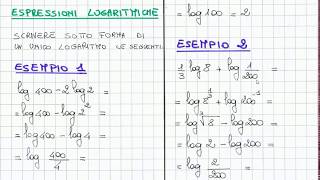 ESPRESSIONI LOGARITMICHE
SCRIVERE SOTTO FORMA DI
UN UNICO LOGARITMO LE SEGUENTI
ESEMPIO 1
log 400 - 2 log 2 =
= log 400 - log 2² =
= log 400 - log 4 =
= log 400/4 =
= log 100 = 2
ESEMPIO 2
1/3 log 8 + log 1/200 =
= log 8^(1/3) + log 200⁻¹ =
= log ∛8 - log 200 =
= log 2 - log 200 =
= log 2/200 =